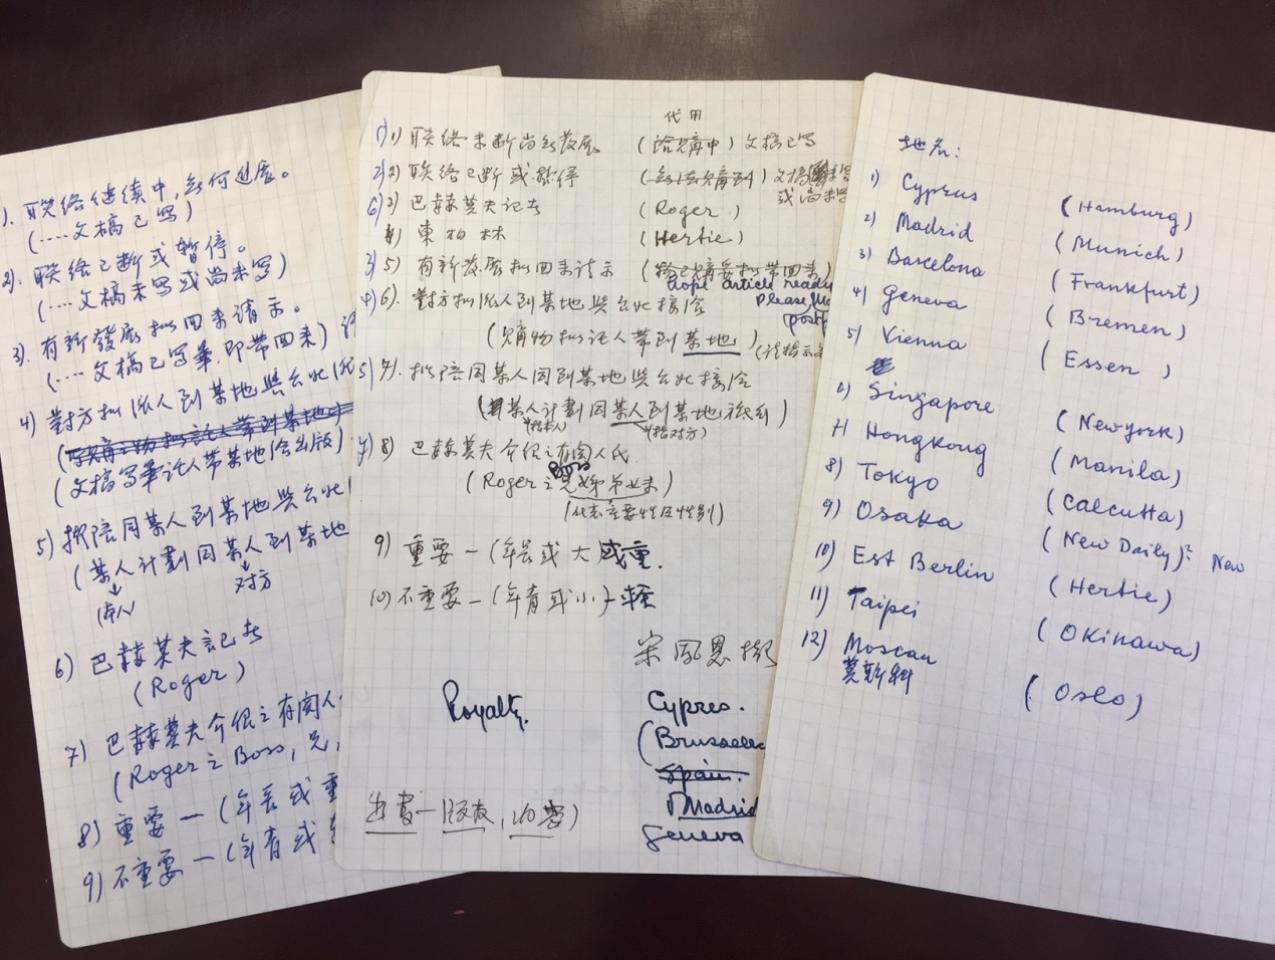 1). 联络继续中，如何进展。
(....文稿已写)
2). 联络已断或暂停。
(....文稿未写或尚未写)
3). 有新發展拟回来请示。
(....文稿已写畢.即带回来)
4) 對方拟派人到某地與台北
(文稿写畢託人带某地给出版)
5) 拟陪同某人到某地與台北
(某人计劃同某人到某地
本人 对方
6) 巴赫莫夫記者
(Roger)
7) 巴赫莫夫介绍之有関人
(Roger之Boss, 兄,
8) 重要－(年長或重
9) 不重要－(年青或
代用
1) 1) 联络未断尚無發展 (洽購中) 文稿已写
2) 2) 联络已断或暂停 (
或尚未写
6) 3) 巴赫莫夫記者 (Roger)
4) 東柏林 (Hertie)
3) 5) 有新發展拟回来请示 (物已購妥拟带回来)
hope article ready
4) 6. 對方拟派人到某地與台北接洽 Please
(購物拟託人带到某地)
5) 7). 拟陪同某人同到某地與台北接洽
(某人计劃同某人到某地
(指本人) (指对方)
7) 8) 巴赫莫夫介绍之有関人氏
Boss
(Roger之兄姊弟妹)
(以表重要性及性别)
9) 重要－(年長或大 或重.
10) 不重要－(年青或小)
宋鳳恩擬
Royalty.
Cypres.
(Brussels
Spain.
Madrid
Geneva
出書－版权,
地名:
1) Cyprus (Hamburg)
2) Madrid (Munich)
3) Barcelona (Frankfurt)
4) Geneva (Bremen)
5) Vienna (Essen)
6) Singapore (Newyork)
7) Hongkong (Manila)
8) Tokyo (Calcutta)
9) Osaka (New Daily)? New
10) Est Berlin (Hertie)
11) Taipei (Okinawa)
12) Moscau (Oslo)
莫斯科